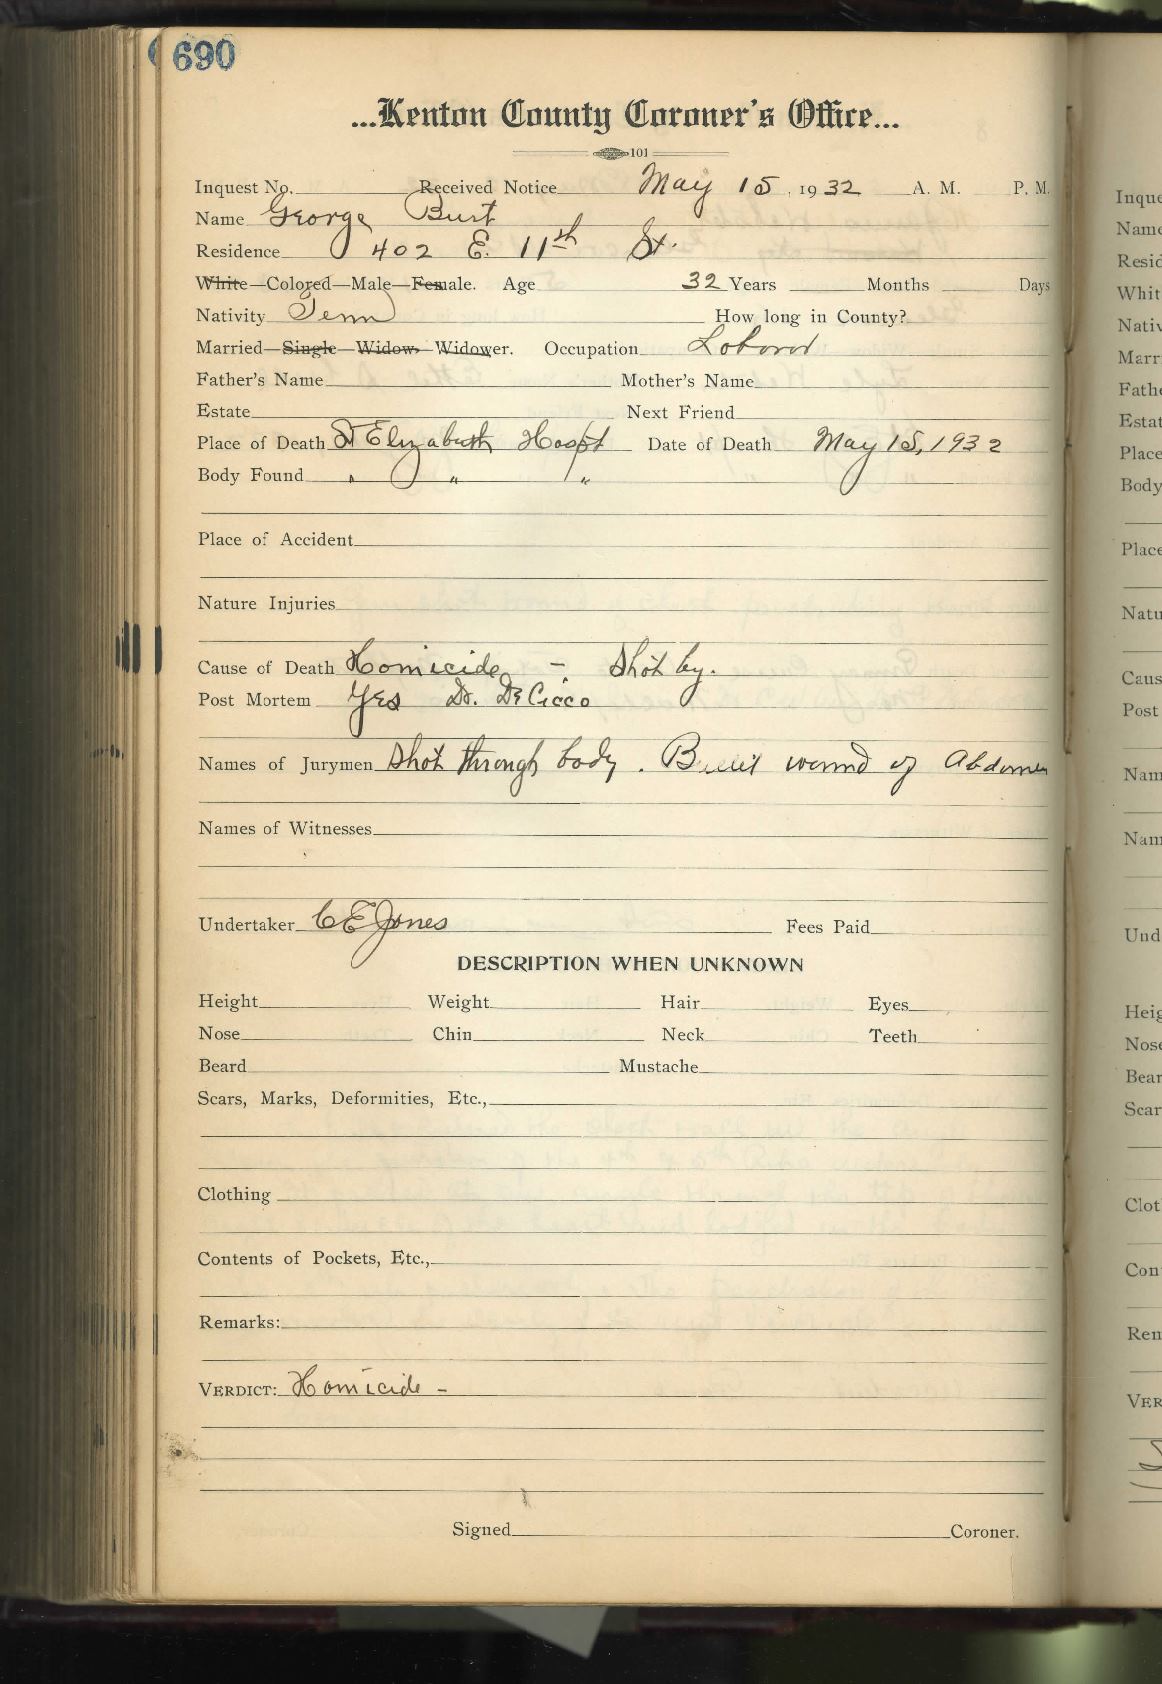 690
...Kenton County Coroner's Office...
101
Inquest No. Received Notice May 15, 1932 A. M. P. M.
Name George Burt
Residence 402 E. 11th St.
White—Colored—Male—Female. Age 32 Years Months Days
Nativity Tenn How long in County?
Married—Single—Widow—Widower. Occupation Laborer
Father's Name Mother's Name
Estate Next Friend
Place of Death St Elizabeth Hospt Date of Death May 15, 1932
Body Found " " "
Place of Accident
Nature Injuries
Cause of Death Homicide - Shot by.
Post Mortem Yes Dr. DeCicco
Names of Jurymen Shot through body. Bullet wound of Abdomen
Names of Witnesses
Undertaker C E Jones Fees Paid
DESCRIPTION WHEN UNKNOWN
Height Weight Hair Eyes
Nose Chin Neck Teeth
Beard Mustache
Scars, Marks, Deformities, Etc.,
Clothing
Contents of Pockets, Etc.,
Remarks:
VERDICT: Homicide -
Signed Coroner.
Inque
Name
Resid
Whit
Nativ
Marr
Fathe
Estat
Place
Body
Place
Natu
Caus
Post
Nam
Nam
Und
Heig
Nose
Bear
Scar
Clot
Con
Ren
VER